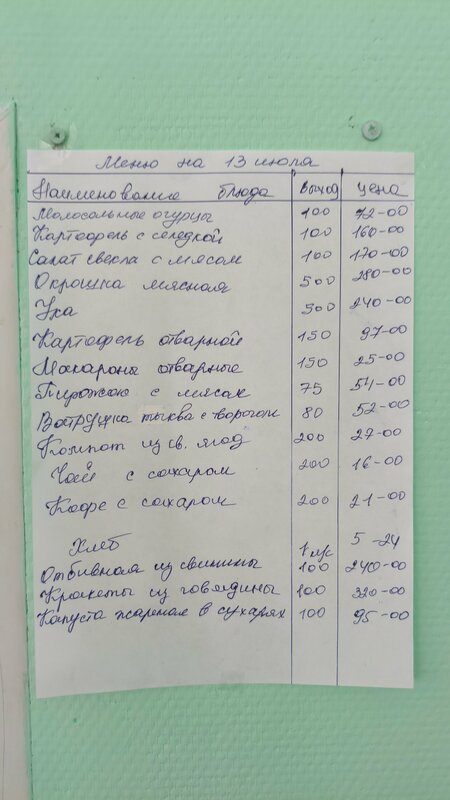 Меню на 13 июля
Наименование блюда выход цена
Малосольные огурцы 100 72-00
Картофель с селедкой 100 160-00
Салат свекла с мясом 100 170-00
Окрошка мясная 500 280-00
Уха 500 240-00
Картофель отварной 150 97-00
Макароны отварные 150 25-00
Пирожок с мясом 75 54-00
Ватрушка тыква с творогом 80 52-00
Компот из св. ягод 200 27-00
Чай с сахаром 200 16-00
Кофе с сахаром 200 21-00
Хлеб 1 кус 5-24
Отбивная из свинины 100 240-00
Крокеты из говядины 100 320-00
Капуста жареная в сухарях 100 95-00